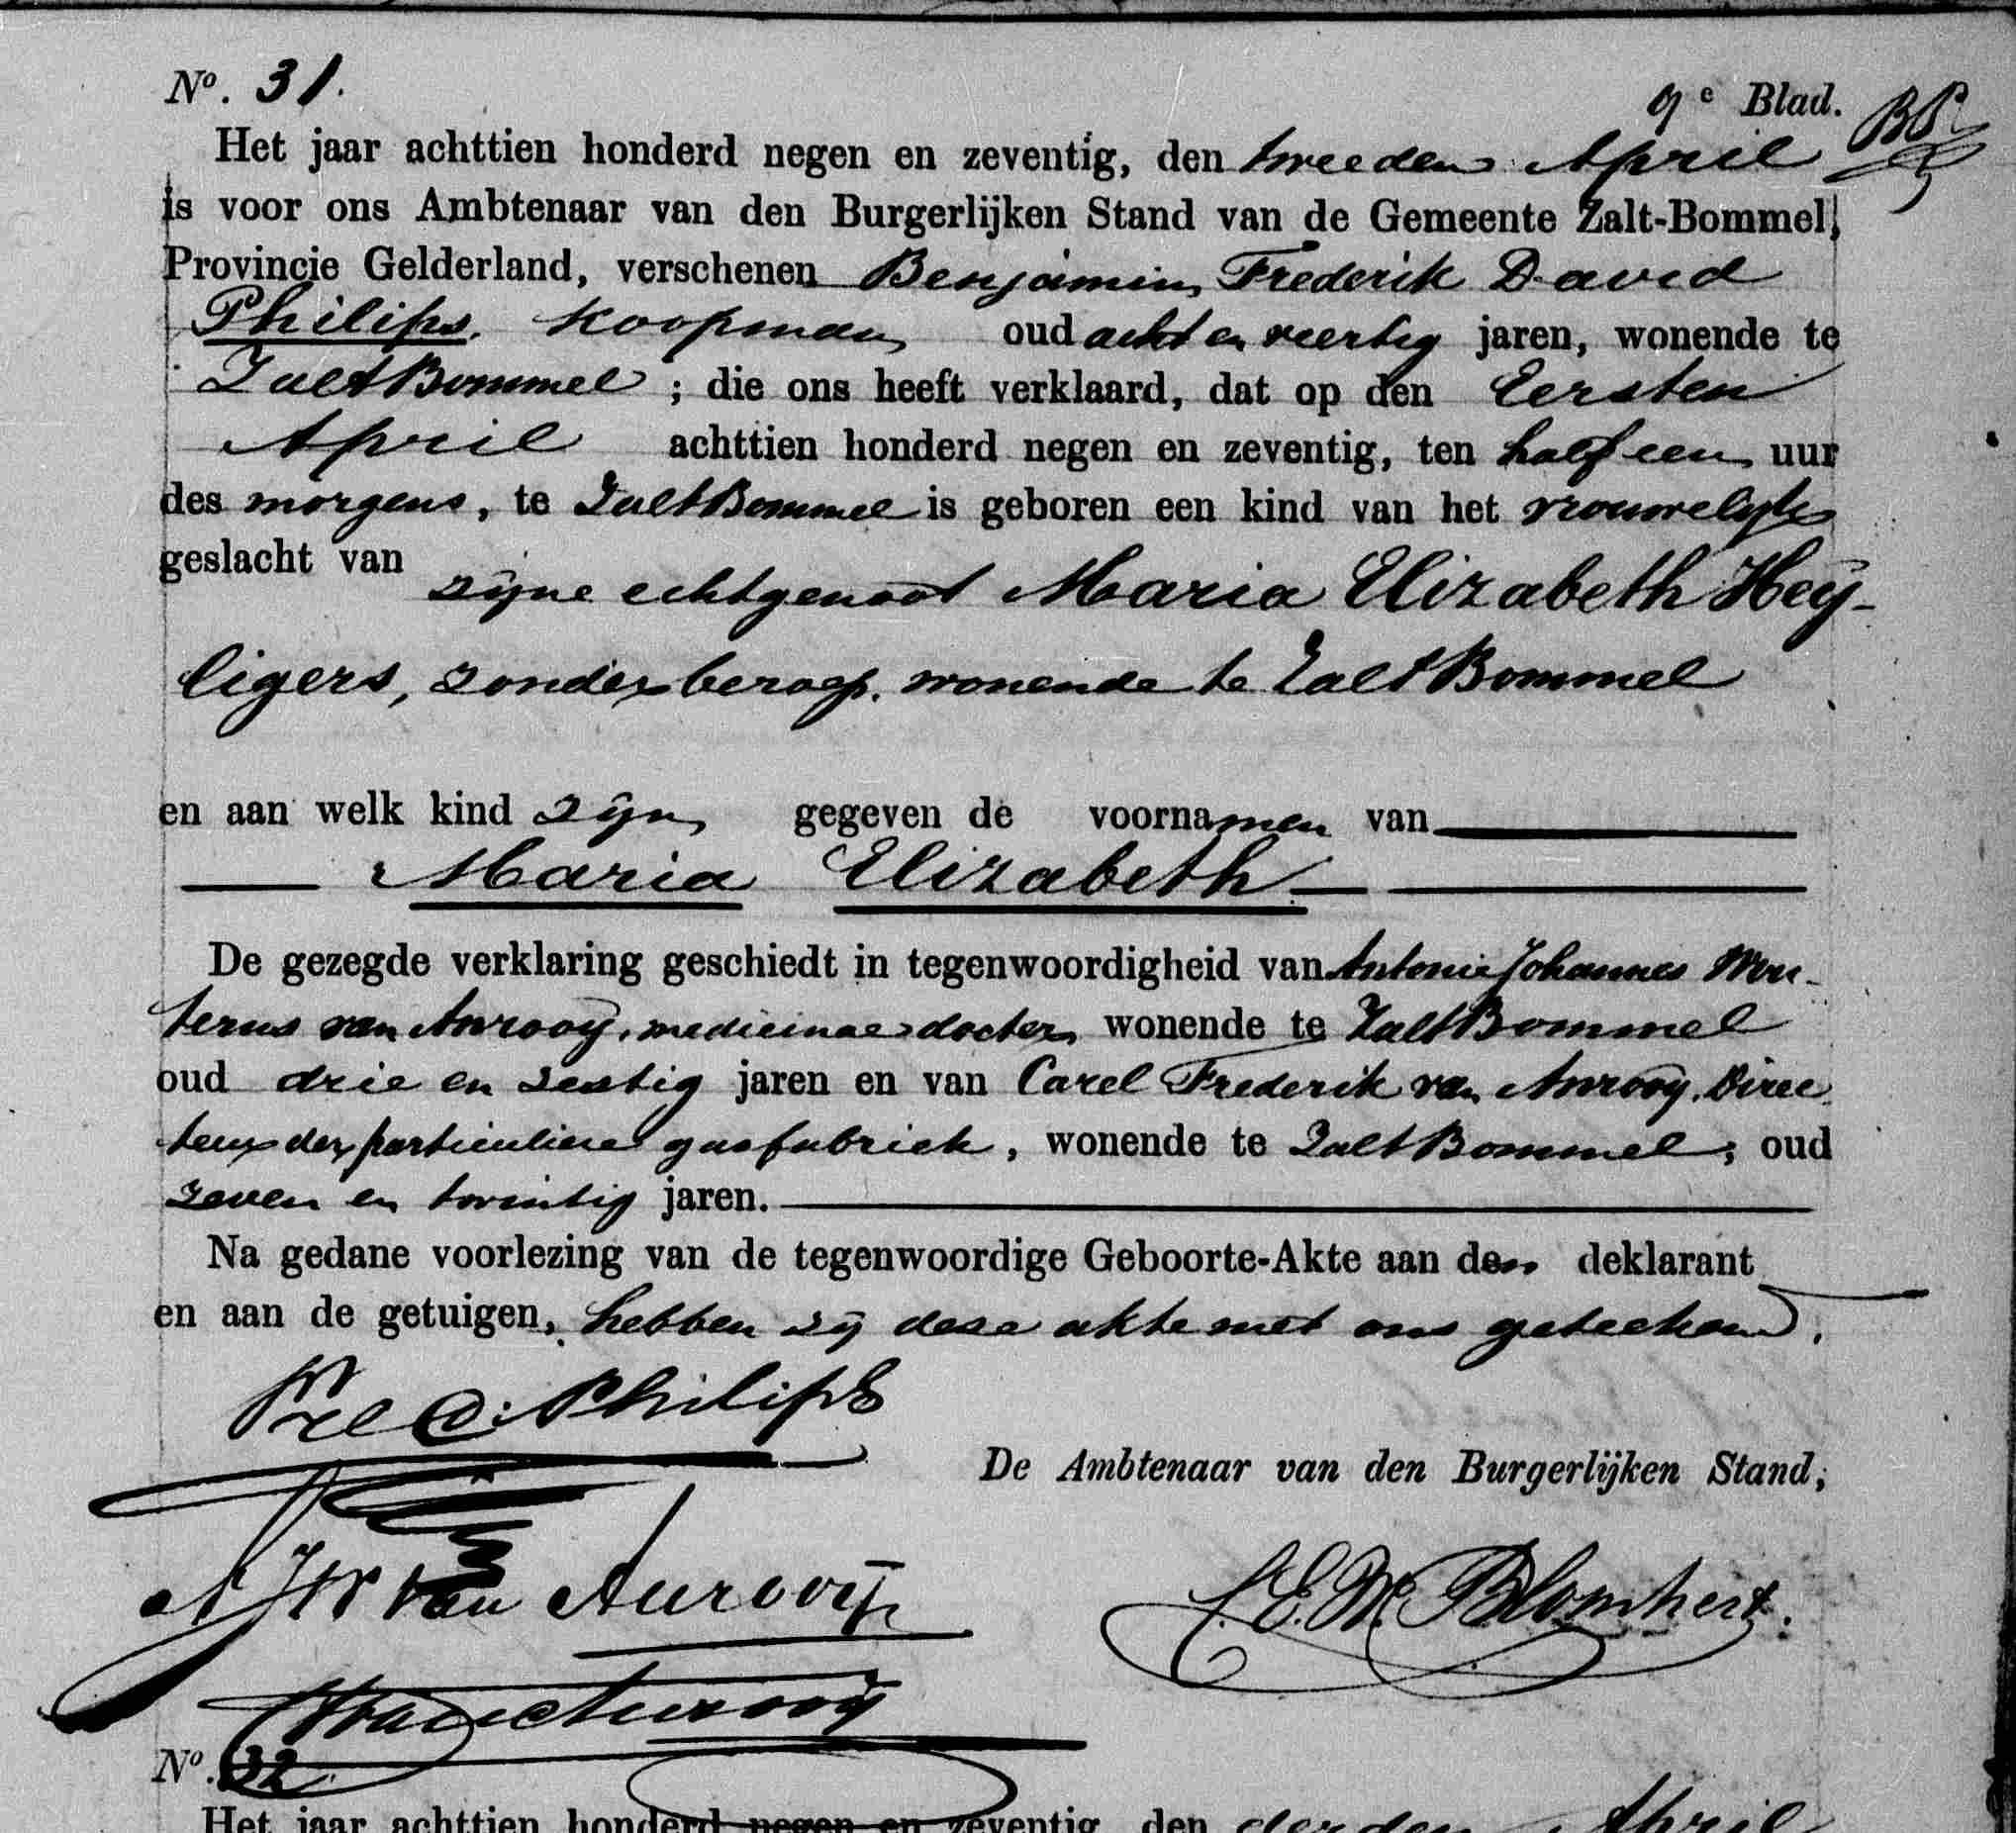 No. 31.
9e Blad.
Het jaar achttien honderd negen en zeventig, den tweeden April
is voor ons Ambtenaar van den Burgerlijken Stand van de Gemeente Zalt-Bommel,
Provincie Gelderland, verschenen Benjamin Frederik David
Philips, Koopman oud acht en veertig jaren, wonende te
ZaltBommel ; die ons heeft verklaard, dat op den Eersten
April achttien honderd negen en zeventig, ten half een uur
des morgens, te ZaltBommel is geboren een kind van het vrouwelijk
geslacht van zijne echtgenoot Maria Elizabeth Hey-
ligers, zonder beroep, wonende te ZaltBommel
en aan welk kind zijn gegeven de voornamen van
Maria Elizabeth
De gezegde verklaring geschiedt in tegenwoordigheid van Antonie Johannes Wou-
terus van Anrooij, medicinae doctor, wonende te ZaltBommel
oud drie en zestig jaren en van Carel Frederik van Anrooy, Direc
teur der particuliere gasfabriek, wonende te ZaltBommel, oud
zeven en twintig jaren.
Na gedane voorlezing van de tegenwoordige Geboorte-Akte aan den deklarant
en aan de getuigen, hebben zij deze akte met ons geteekend.
Fred: Philips
De Ambtenaar van den Burgerlijken Stand,
AJW van Anrooij
van Anrooij
No. 32.
Het jaar achttien honderd negen en zeventig, den derden April